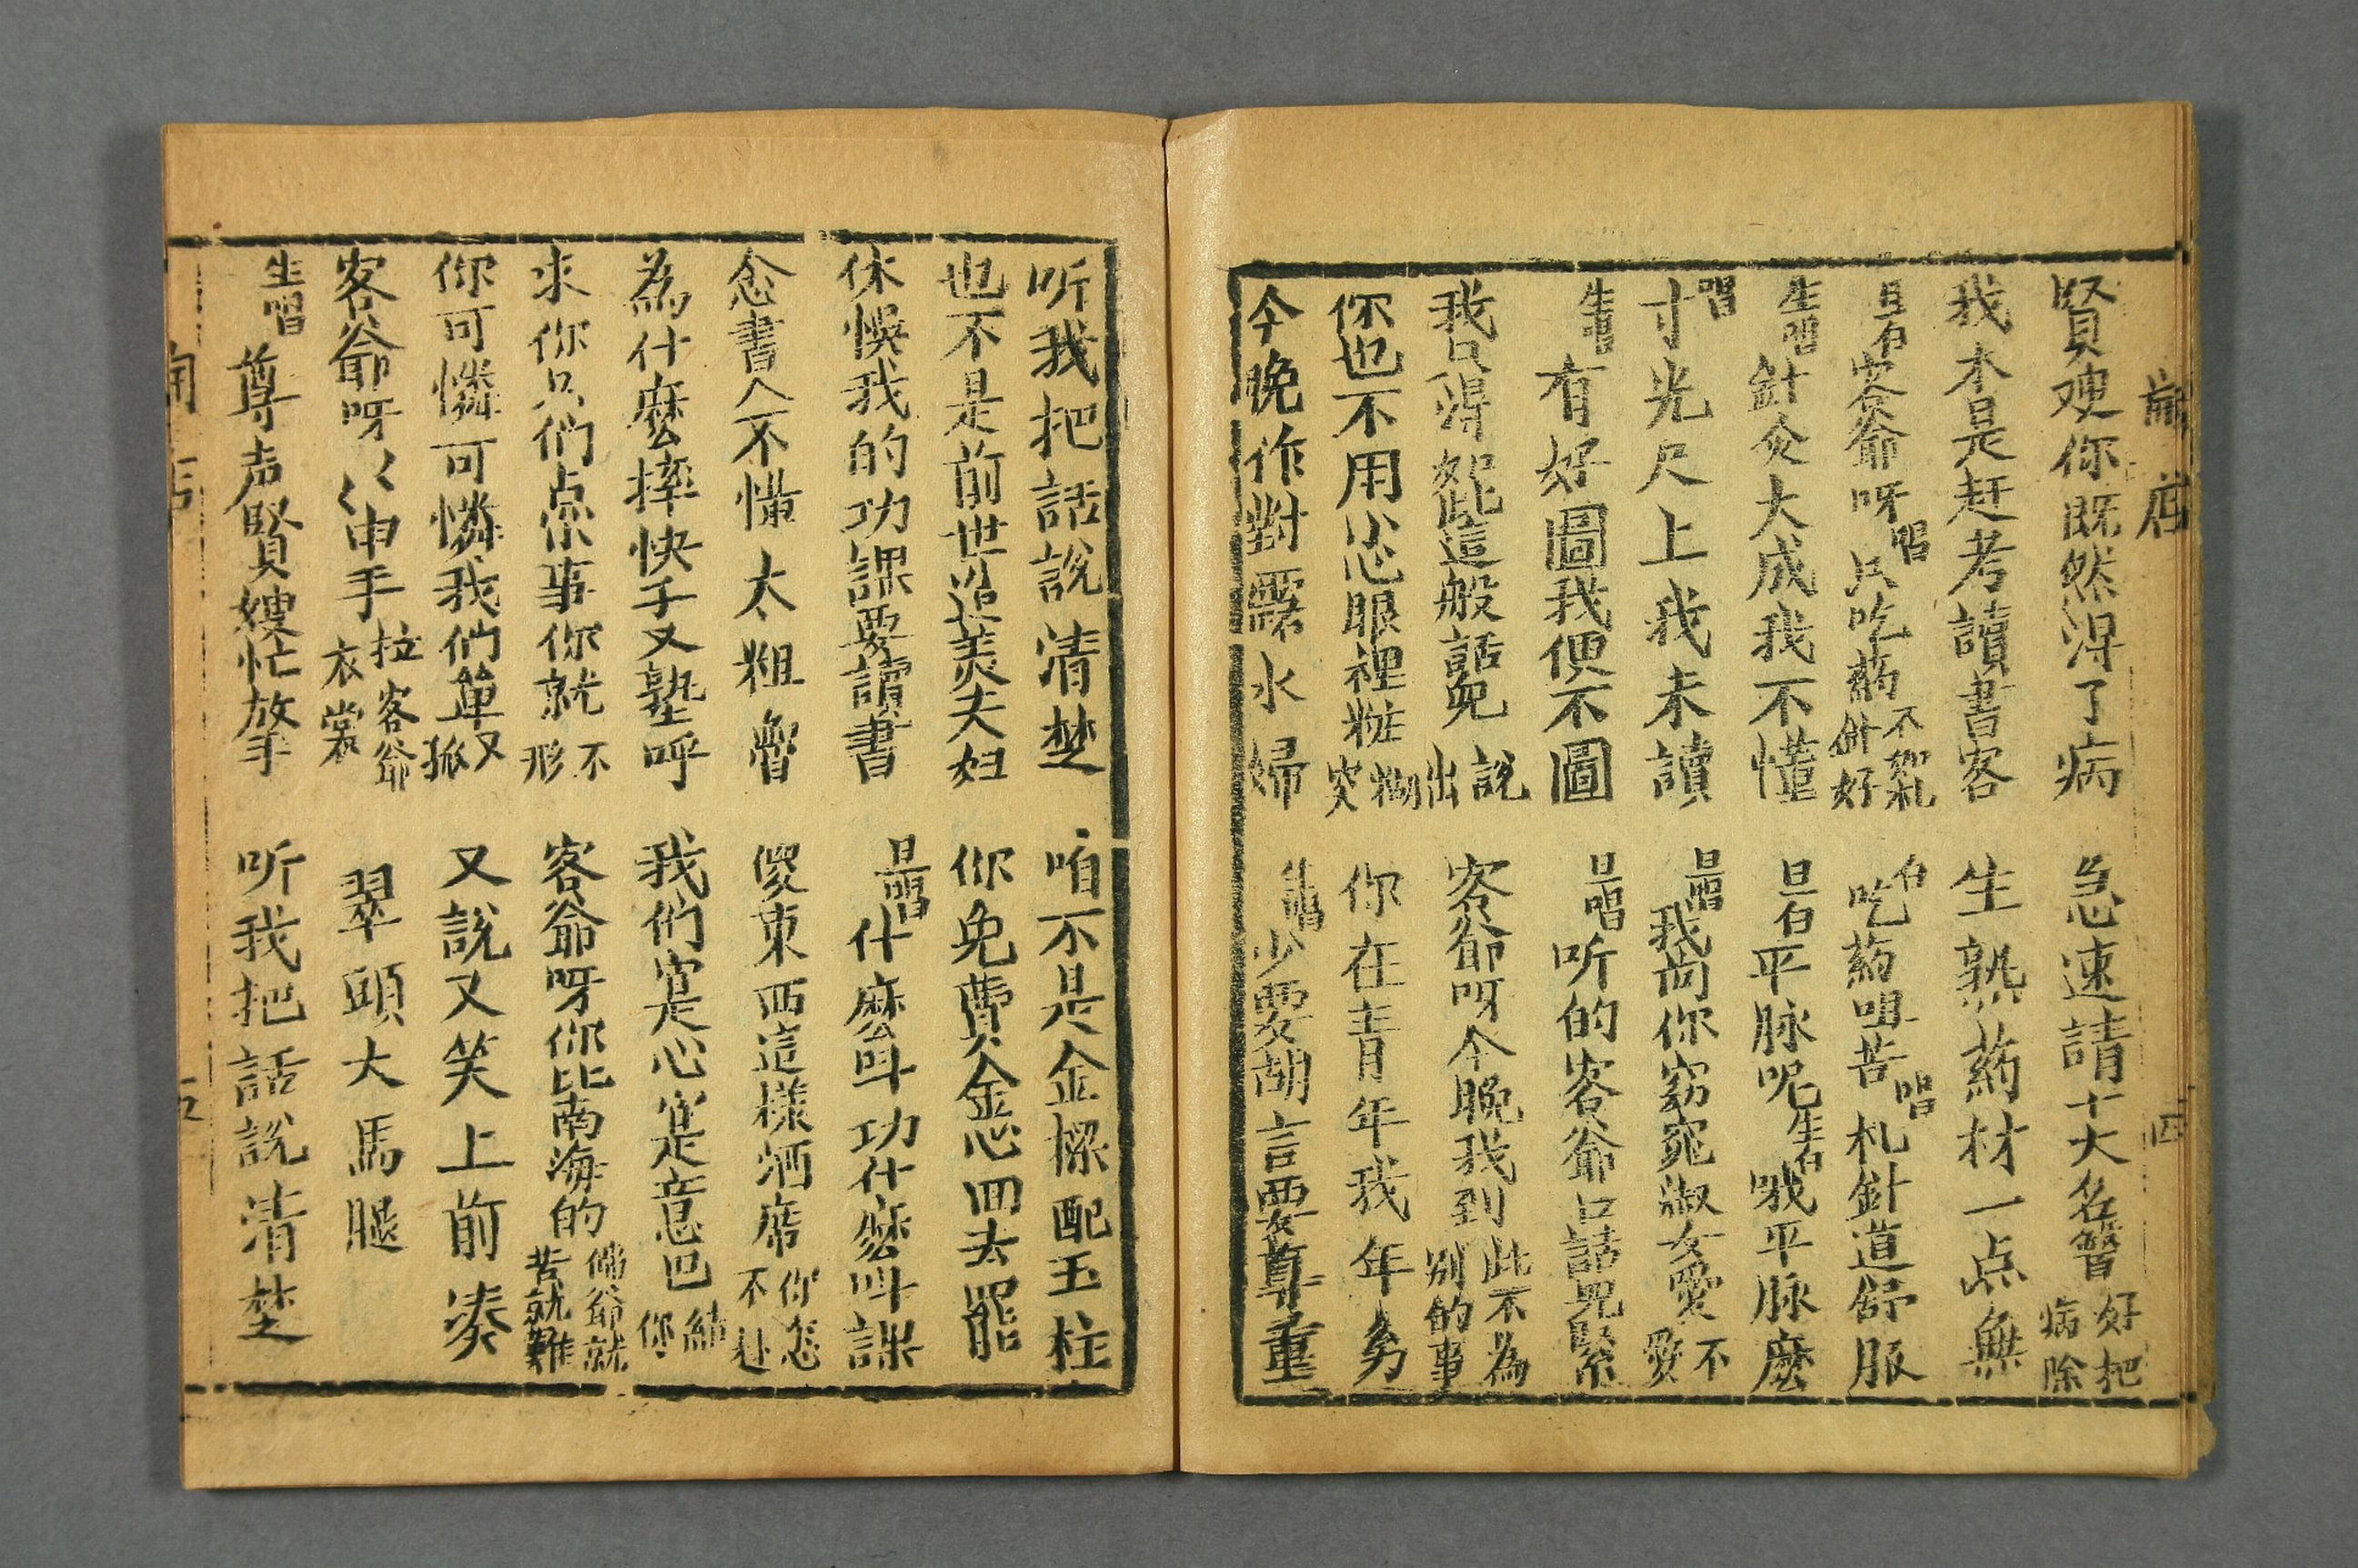 賢嫂你既然淂了病 急速請十大名醫好把病除
我本是赶考讀書客 生熟药材一点無
旦白客爺呀唱只吃药不如札針好 白吃药咀苦唱札針道舒服
生唱針灸大成我不懂 旦白平脉呢生白哦平脉麽
唱寸光尺上我未讀 旦唱我尚你窈窕淑女愛不愛
生唱有好圖我便不圖 旦唱听的客爺口話兒緊
我只淂把這般話兒說出 客爺呀今晚我到此不為別的事
你也不用心眼裡粧糊突 你在青年我年多
今晚作對露水婦 生唱少要胡言要尊重
听我把話說清楚 咱不是金樑配玉柱
也不是前世造羡夫妇 你免費金心回去罷
休悞我的功課要讀書 旦唱什麽叫功什麽叫課
念書人不懂太粗魯 傻東西這樣酒席你怎不赴
為什麽摔快子又墊呼 我们寔是心寔是意巴結你
求你只們点尔事你就不形 客爺呀你比南海的佛爺就苦就難
你可憐可憐我们单又孤 又說又笑上前凑
客爺呀〱〱申手拉客爺衣裳 翠頭大馬腿
生唱尊声賢嫂忙放手 听我把話說清楚
店
四
五